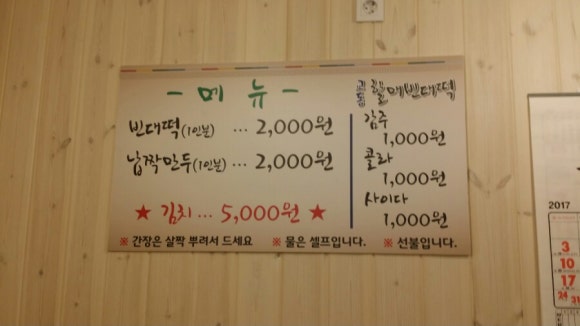 - 메 뉴 -
빈대떡(1인분) ... 2,000원
납짝만두(1인분) ... 2,000원
★ 김치 ... 5,000원 ★
할매빈대떡
감주
1,000원
콜라
1,000원
사이다
1,000원
※ 간장은 살짝 뿌려서 드세요 ※ 물은 셀프입니다. ※ 선불입니다.
2017
3
10
17
24
31